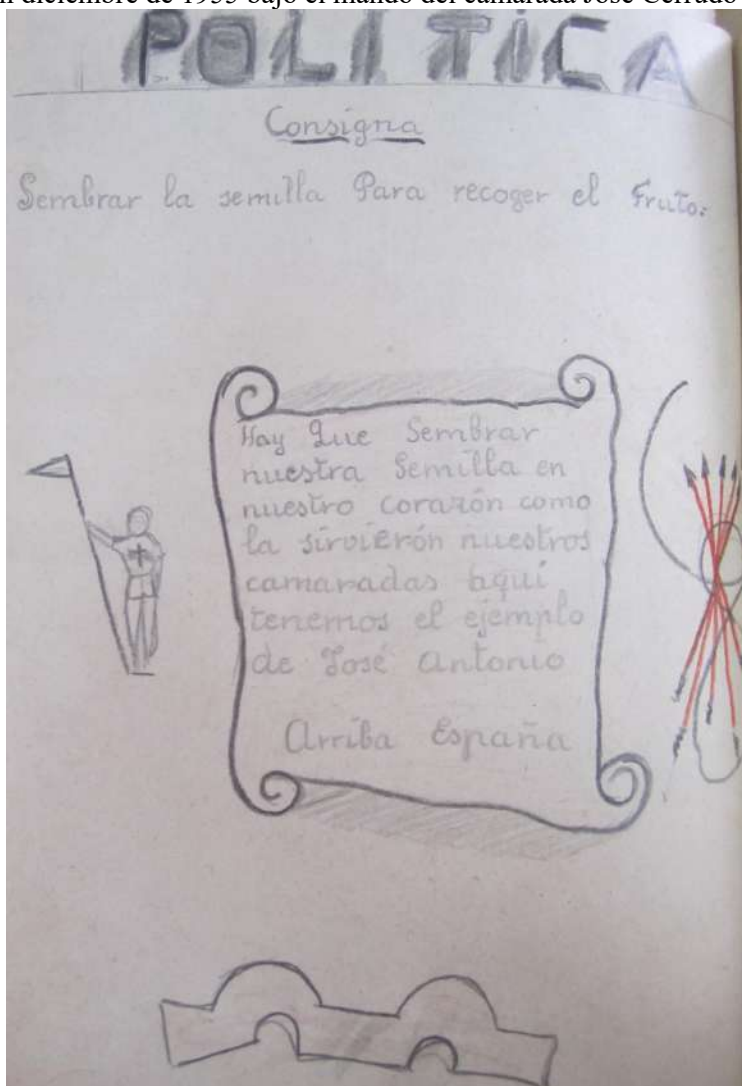 n diciembre de 1955 bajo el mando del camarada José Cerrudo
POLITICA
Consigna
Sembrar la semilla Para recoger el Fruto.
Hay Que Sembrar
nuestra Semilla en
nuestro corazón como
la sirvierón nuestros
camaradas aqui
tenemos el ejemplo
de José Antonio
Arriba España